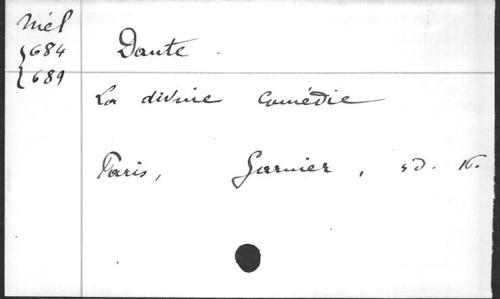 Niel
684 Dante.
689
La divine Comédie
Paris, Garnier, sd. 16.